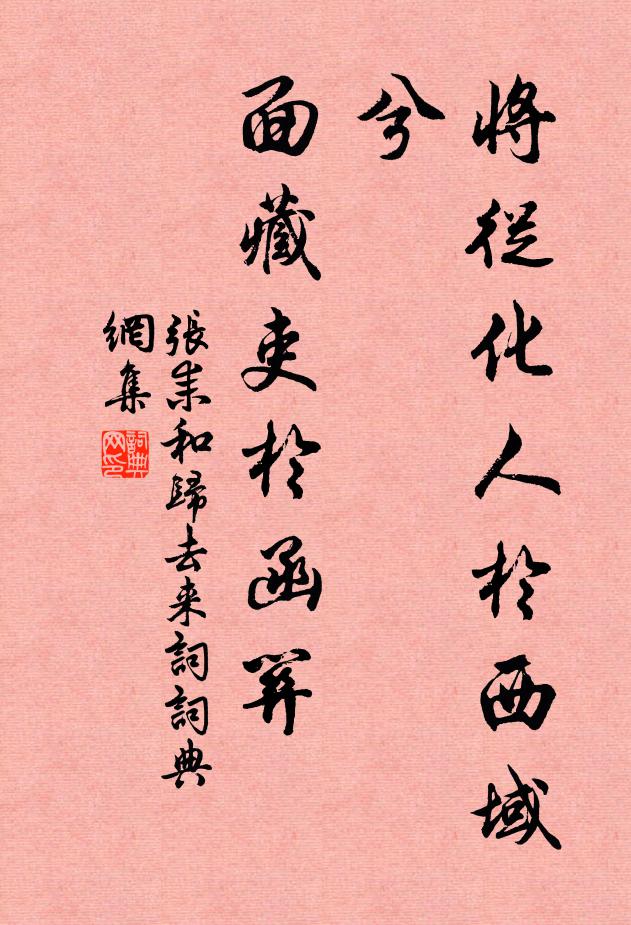 將從化人於西域
兮
面藏吏於函關
張耒和歸去来詞詞典
網集
詞典
网印